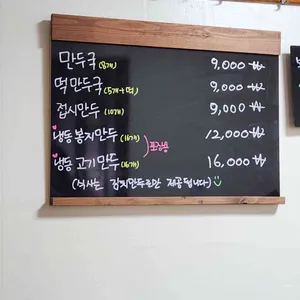 만두국(8개) 9,000 ₩
떡만두국(5개+떡) 9,000 ₩
접시만두(10개) 9,000 ₩
냉동 봉지만두(16개) 12,000 ₩
포장용
냉동 고기만두(16개) 16,000 ₩
(식사는 접시만두로만 제공됩니다)